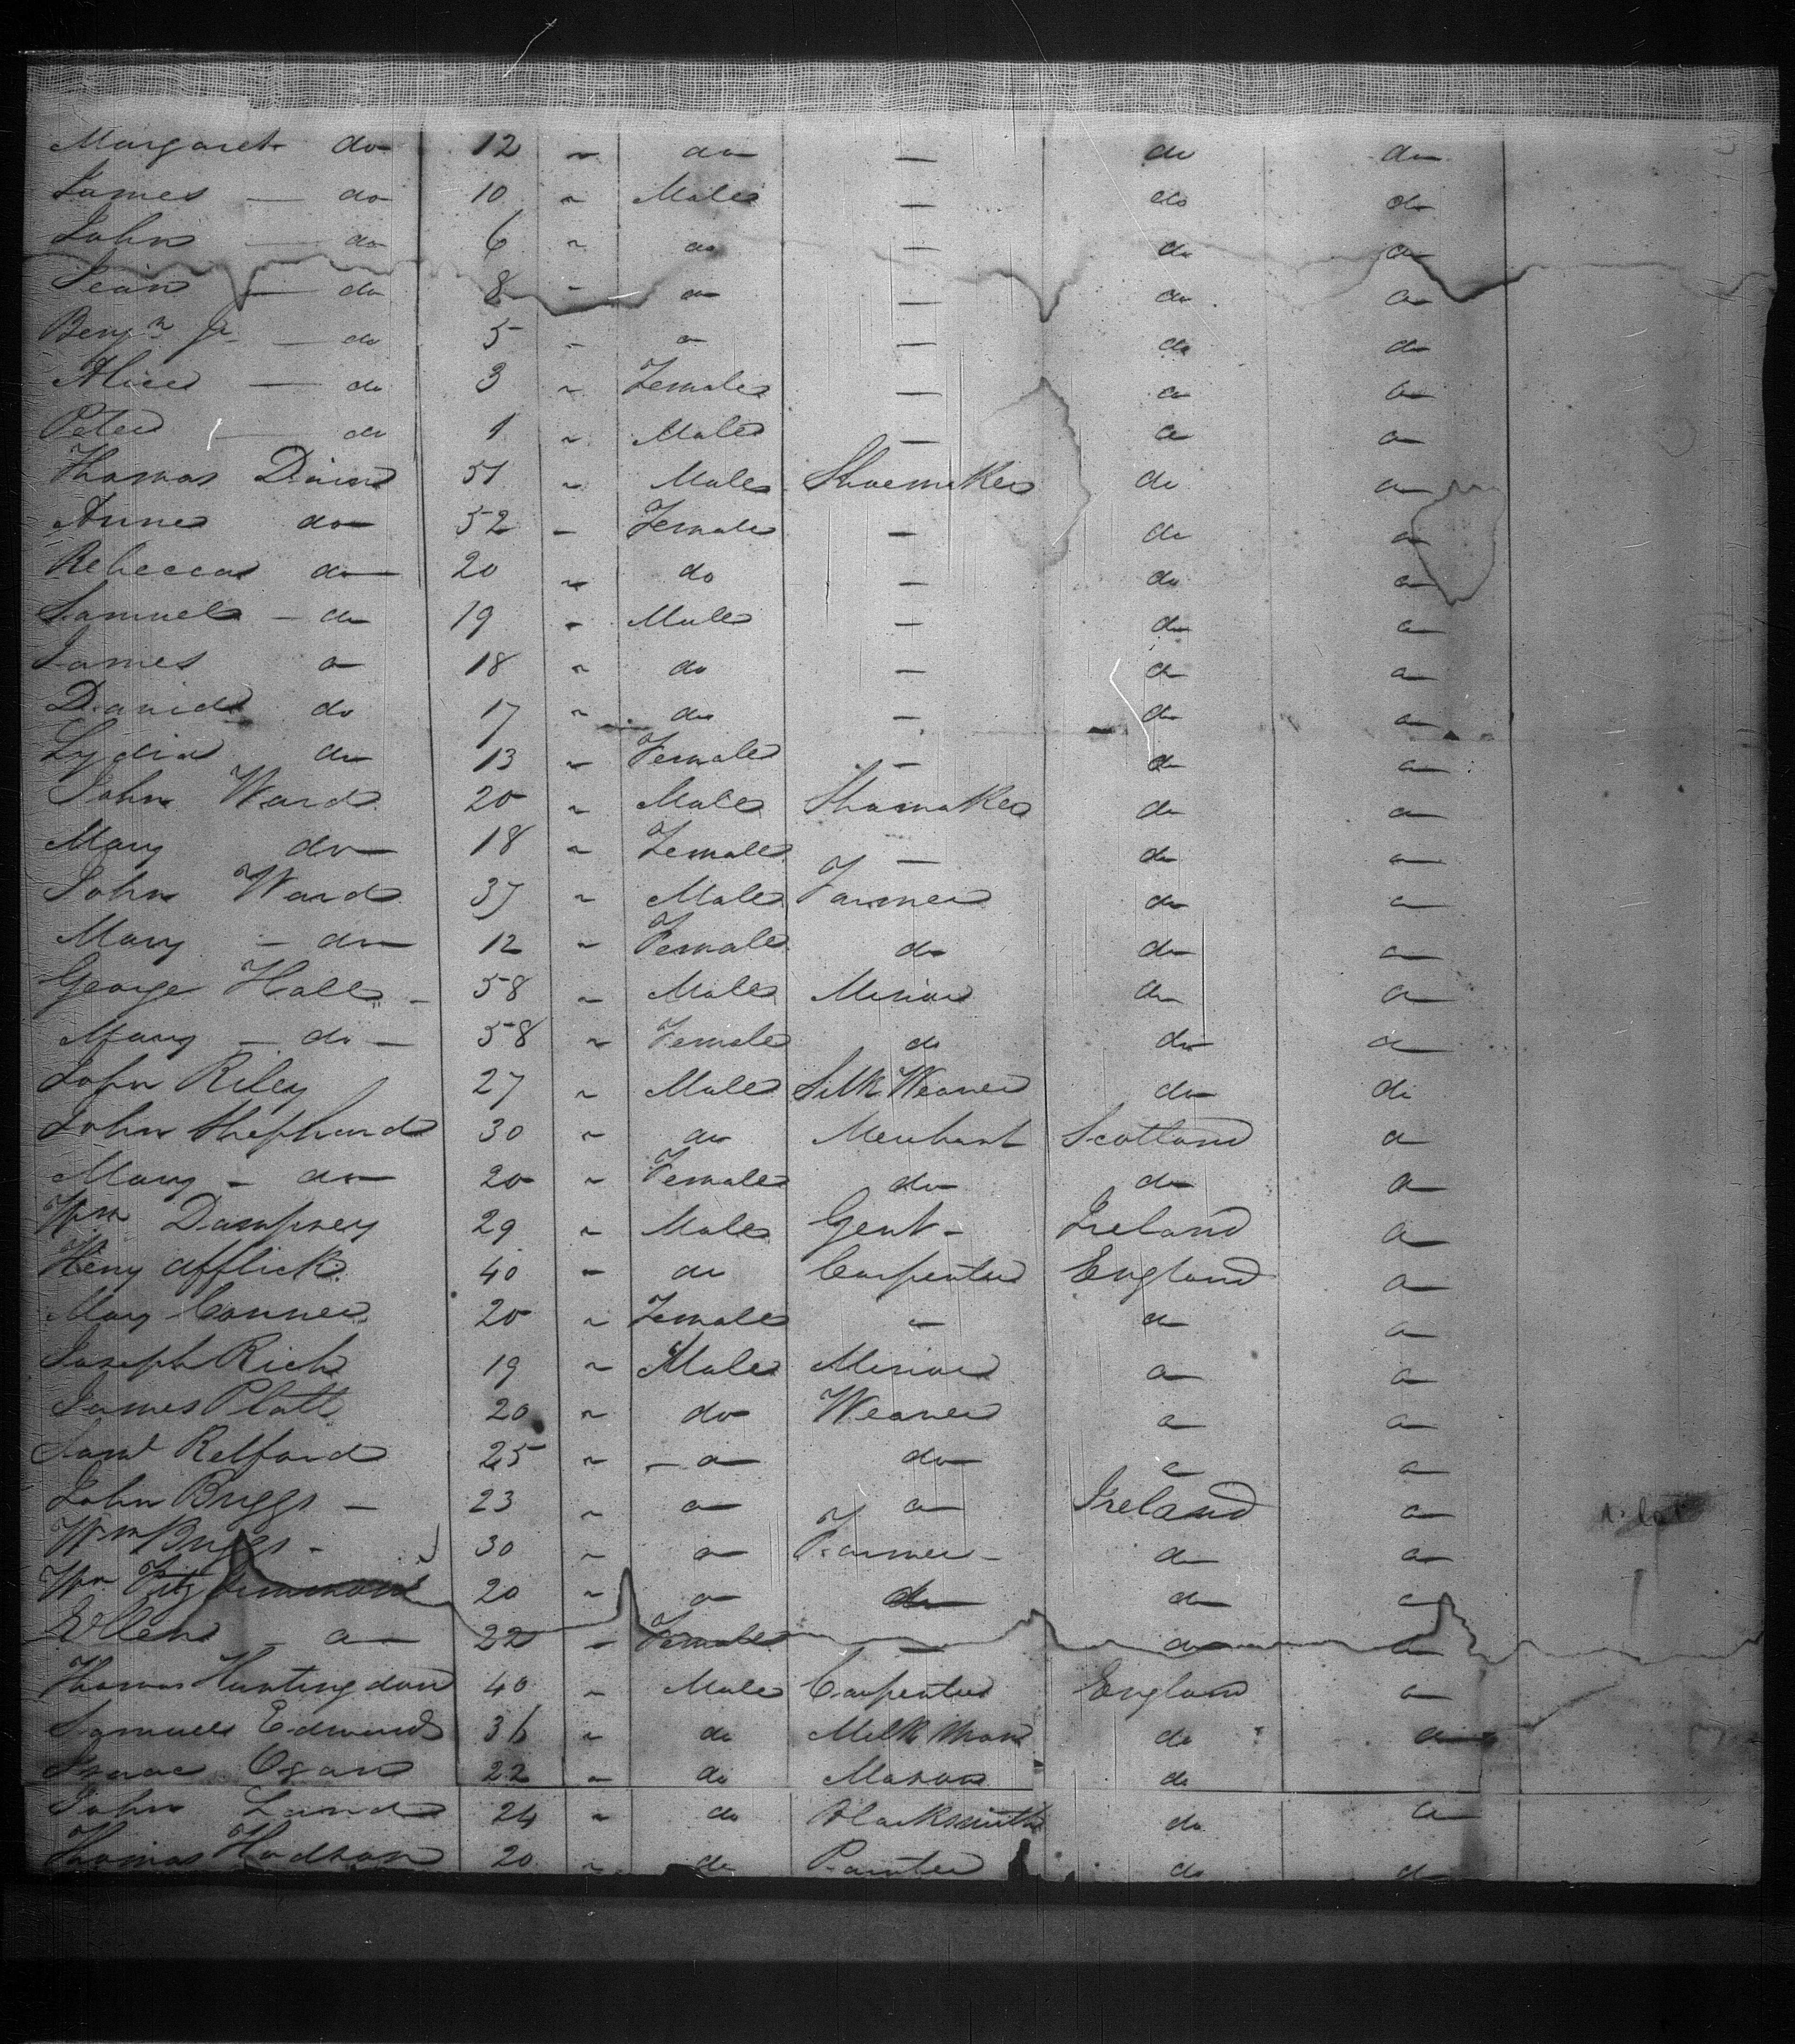 Margaret do 12 " do — do do
James — do 10 " Male — do do
John — do 6 " do — do do
Jean — do 8 " do — do do
Benjn Jr — do 5 " do — do do
Alice — do 3 " Female — do do
Peter — do 1 " Male — do do
Thomas 51 " Male Shoemaker do do
Anne do 52 " Female — do do
Rebecca do 20 " do — do do
Samuel - do 19 " Male — do do
James do 18 " do — do do
David do 17 " do — do do
Lydia do 13 " Female — do do
John Ward 20 " Male Shomaker do do
Mary do 18 " Female — do do
John Ward 37 " Male Farmer do do
Mary - do 12 " Female do do do
George Hall - 58 " Male Minor do do
Mary - do - 58 " Female do do do
John Riley 27 " Male Silk Weaver do do
John Shephard 30 " do Merchant Scotland do
Mary - do 20 " Female do do do
Wm Dampsey 29 " Male Gent - Ireland do
Heny Afflick 40 " do Carpenter England do
Mary Conner 20 " Female — do do
Joseph Rich 19 " Male Minor do do
James Platt 20 " do Weaver do do
Saml Relford 25 " - do do do do
John Briggs - 23 " do do Ireland do
Wm Briggs - 30 " do Farmer - do do
Wm Fitzsimmons 20 " do do do do
Ellen - do 22 " Female — do do
Thomas Huntingdon 40 " Male Carpenter England do
Samuel Edwards 36 " do Milk Man do do
Isaac 22 " do Mason do
John Land 24 " do Blacksmith do do
Thomas Hodson 20 " do Painter do do